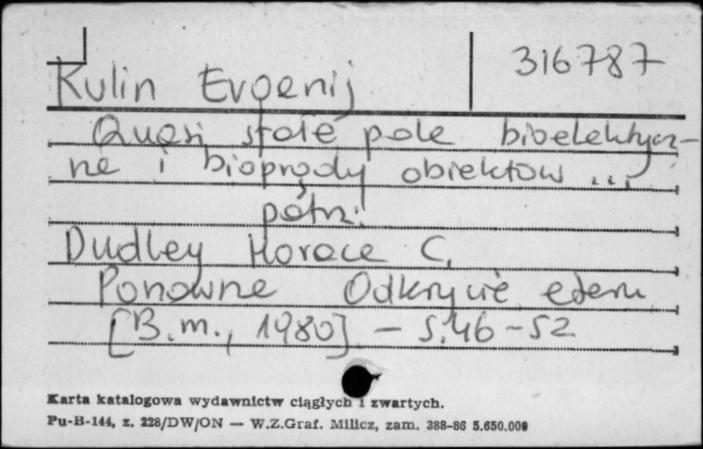 316787
Kulin Evgenij
Quasi stałe pole bioelektrycz-
ne i bioprądy obiektów ...
patrz:
Dudley Horace C.
Ponowne Odkrycie eteru
[B.m., 1980]. - s. 46-52
Karta katalogowa wydawnictw ciągłych i zwartych.
Pu-B-144, z. 228/DW/ON — W.Z.Graf. Milicz, zam. 388-86 5.650.000